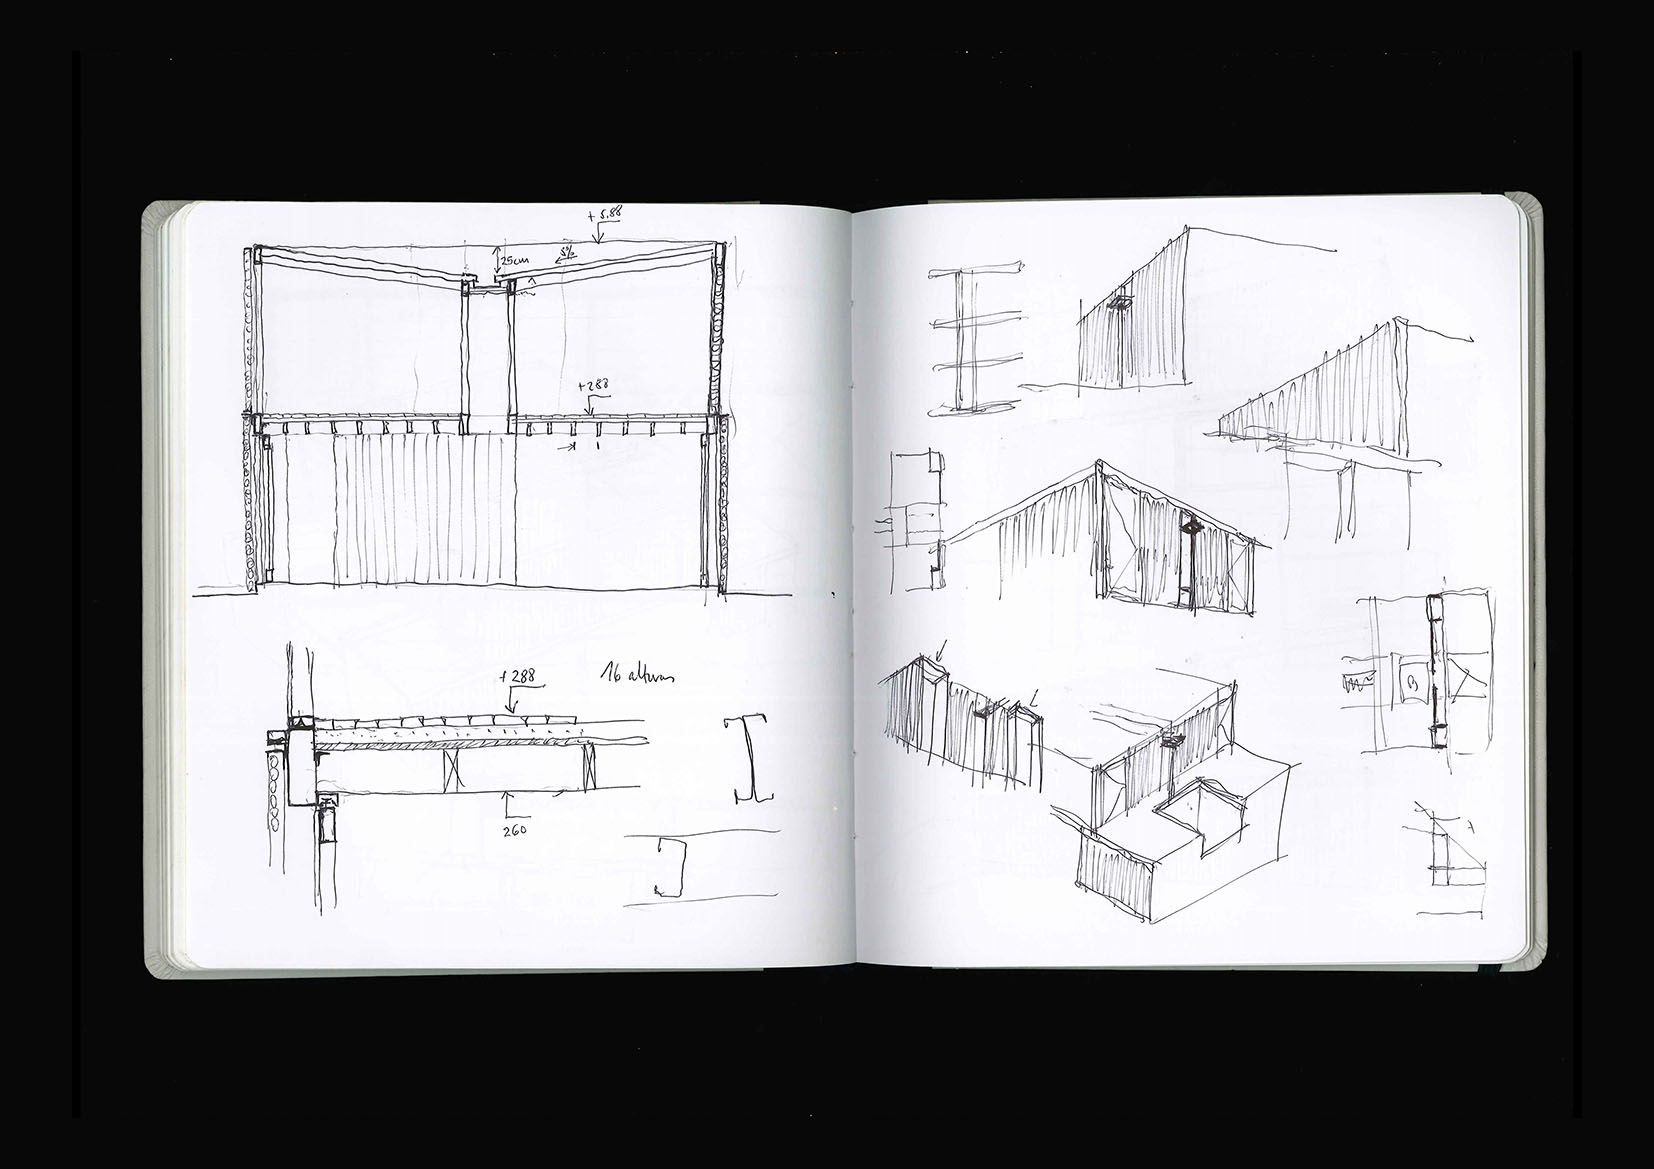 +5.88
25cm
5%
+288
+288
16 alturas
260